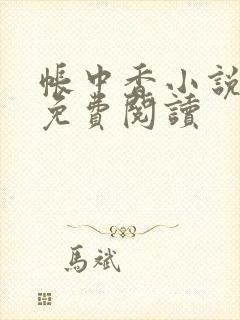 帳中香小說
免費閱讀
馬斌